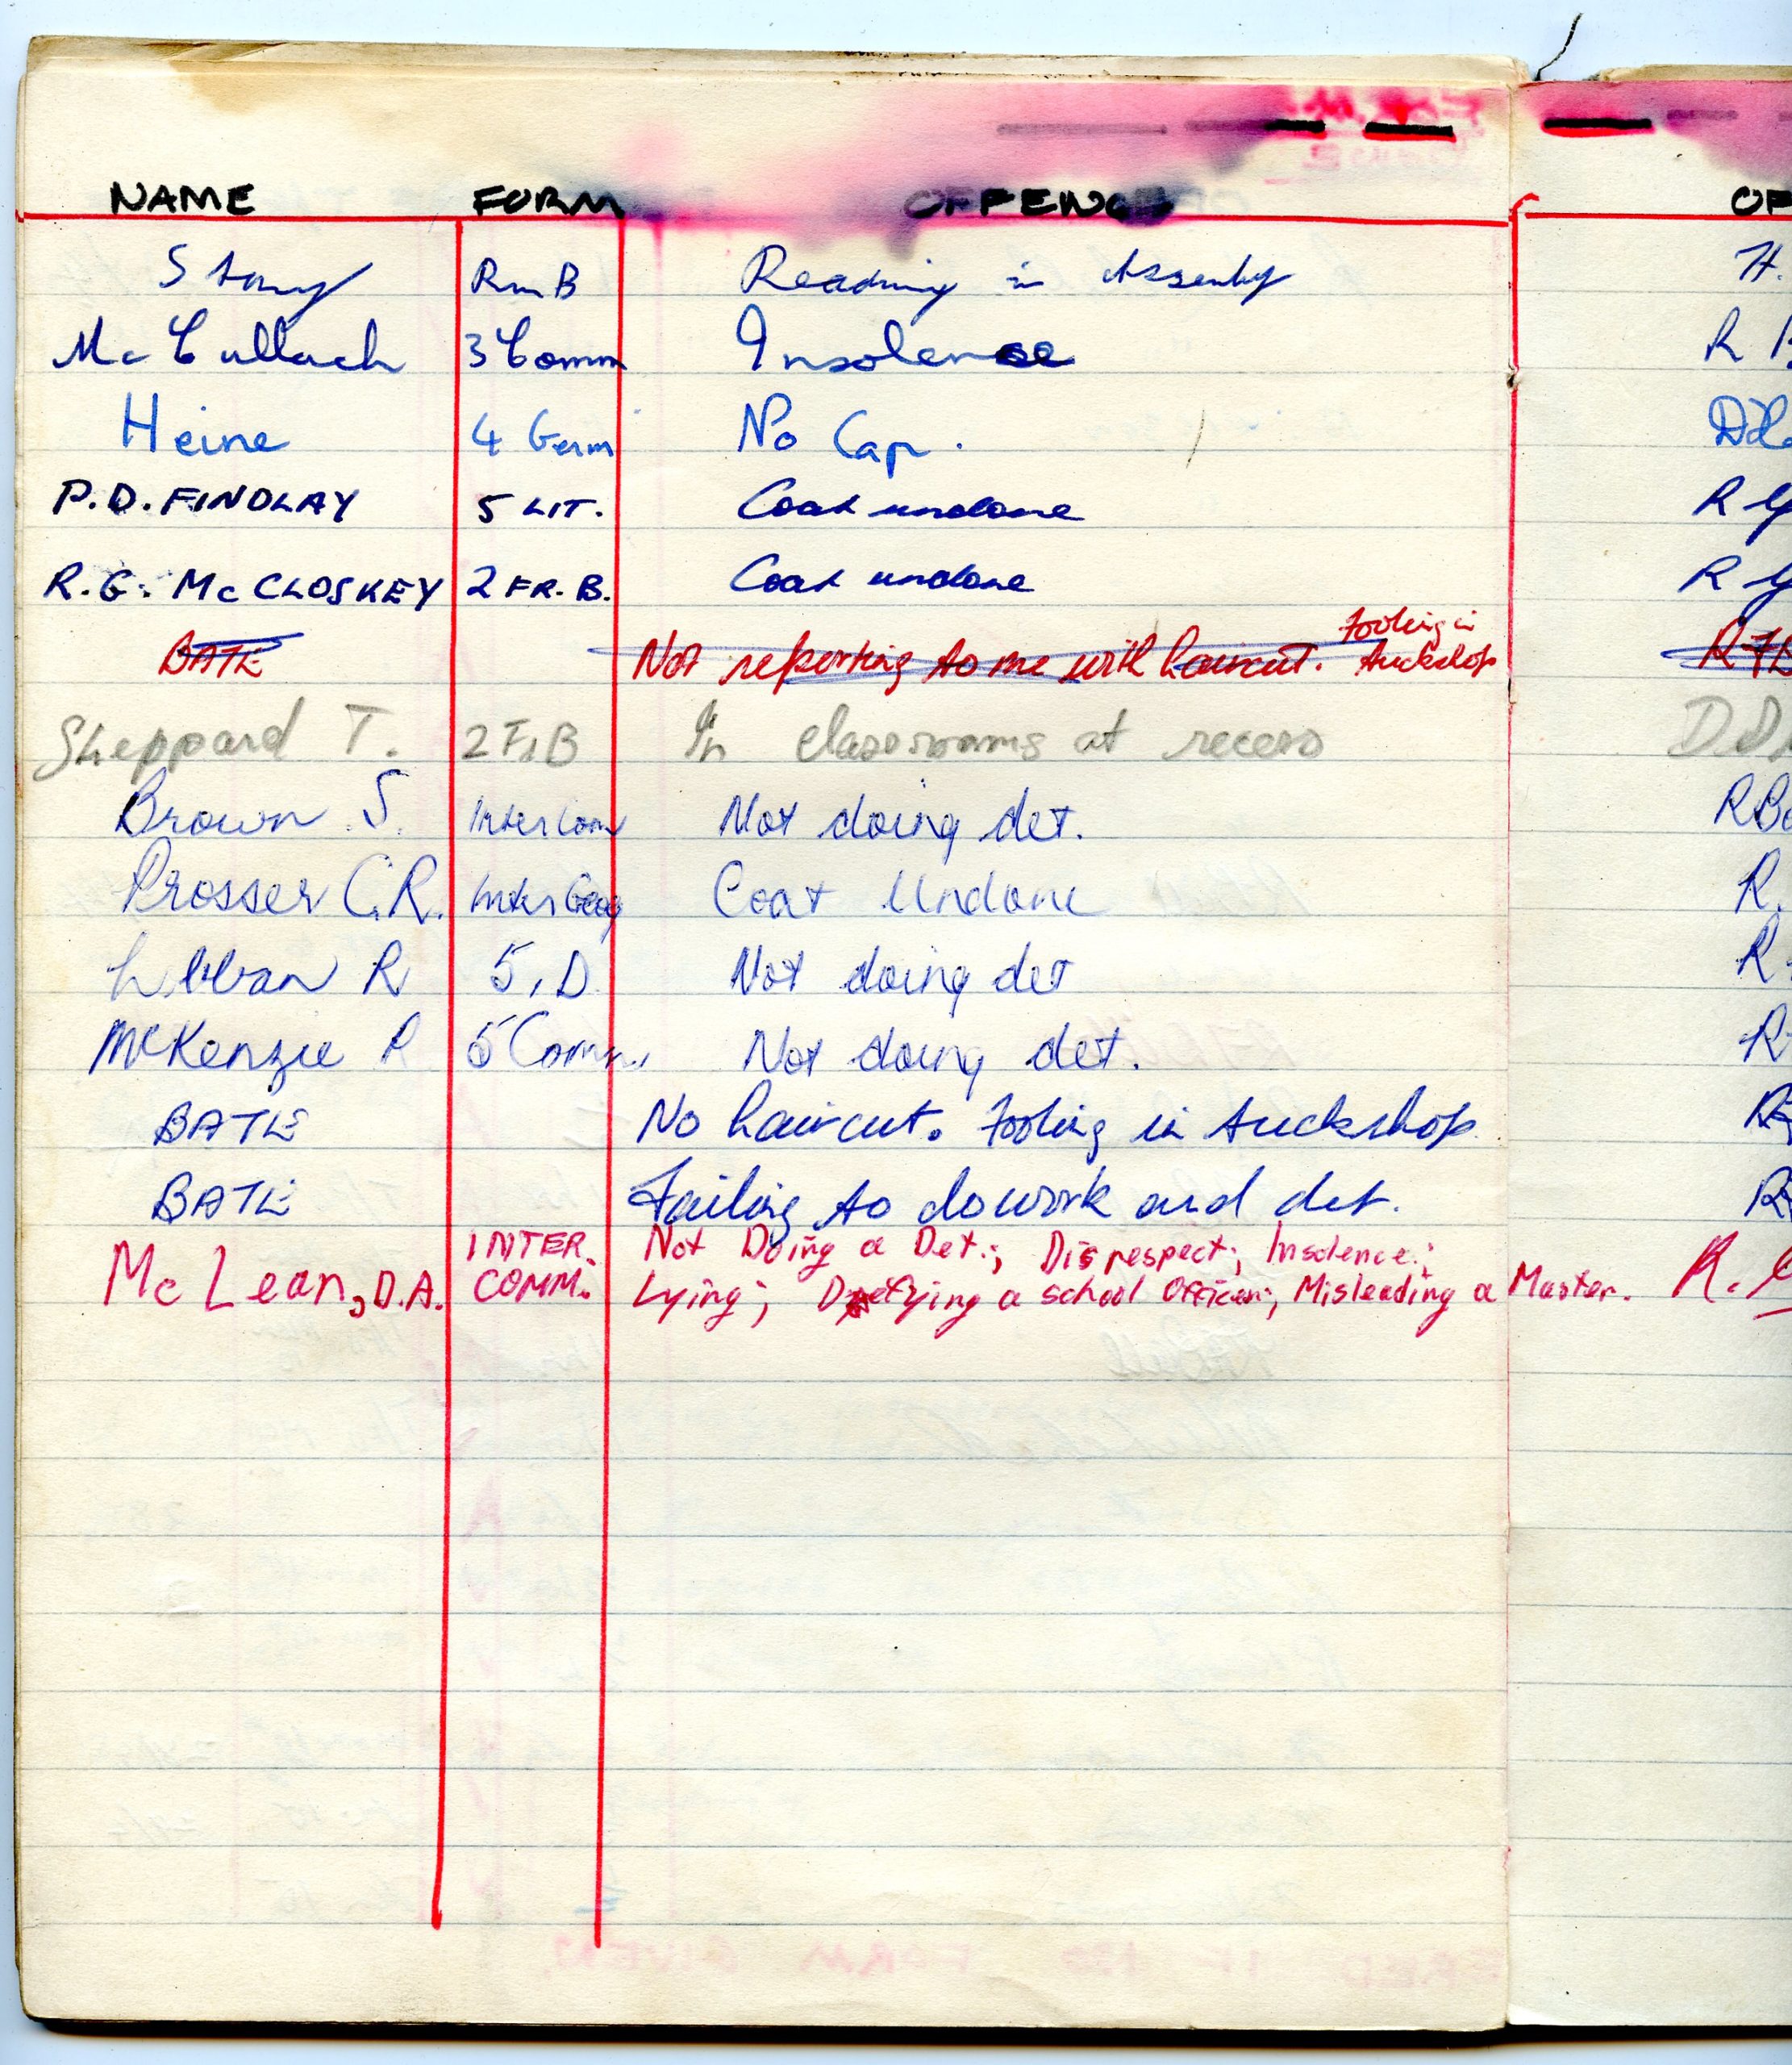 NAME FORM OFFENCE OF
Story RmB Reading in Assembly H.
McCullach 3 Comm Insolence R
Heine 4 Germ No Cap.
P.D. FINDLAY 5 LIT. Coat undone R
R.G. McCLOSKEY 2 FR. B. Coat undone R
Fooling in
BATE Not reporting to me with haircut. tuckshop
Sheppard T. 2 Fr B In classrooms at recess D.D.
Brown S. Inter Com Not doing det.
Prosser C.R. Inter Geog Coat Undone R.
R 5, D Not doing det R
McKenzie R 5 Comm. Not doing det. R
BATE No haircut. Fooling in tuckshop
BATE Failing to do work and det.
INTER. Not Doing a Det.; Disrespect; Insolence;
McLean, D.A. COMM. Lying; Defying a school Officer; Misleading a Master. R.